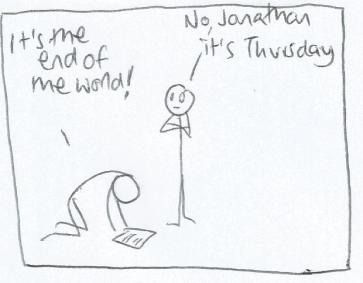 It's the
end of
the world!
No, Jonathan
it's Thursday